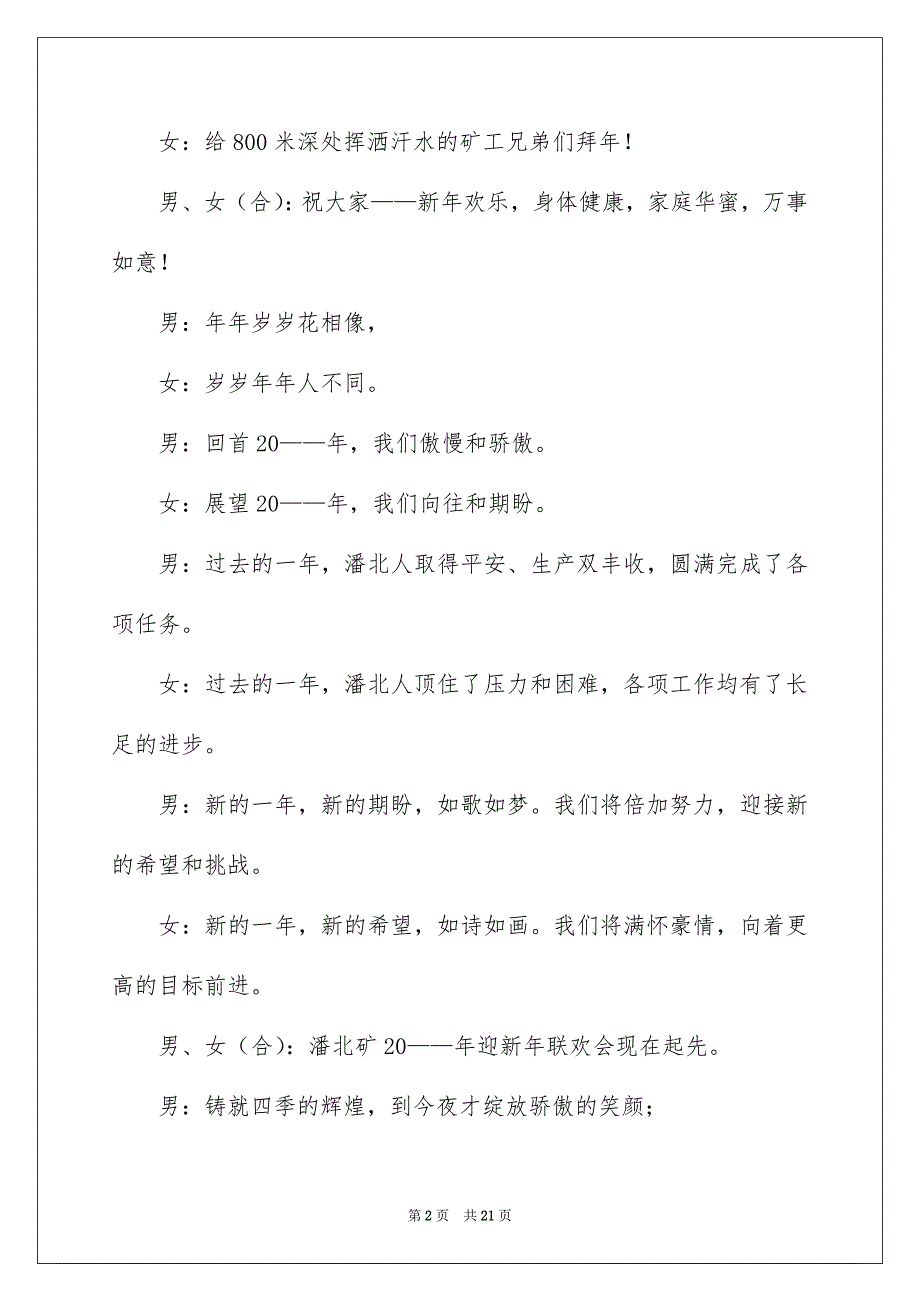 女：给 800 米深处挥洒汗水的矿工兄弟们拜年！
男、女（合）：祝大家——新年欢乐，身体健康，家庭华蜜，万事
如意！
男：年年岁岁花相像，
女：岁岁年年人不同。
男：回首 20——年，我们傲慢和骄傲。
女：展望 20——年，我们向往和期盼。
男：过去的一年，潘北人取得平安、生产双丰收，圆满完成了各
项任务。
女：过去的一年，潘北人顶住了压力和困难，各项工作均有了长
足的进步。
男：新的一年，新的期盼，如歌如梦。我们将倍加努力，迎接新
的希望和挑战。
女：新的一年，新的希望，如诗如画。我们将满怀豪情，向着更
高的目标前进。
男、女（合）：潘北矿 20——年迎新年联欢会现在起先。
男：铸就四季的辉煌，到今夜才绽放骄傲的笑颜；
第 2 页 共 21 页